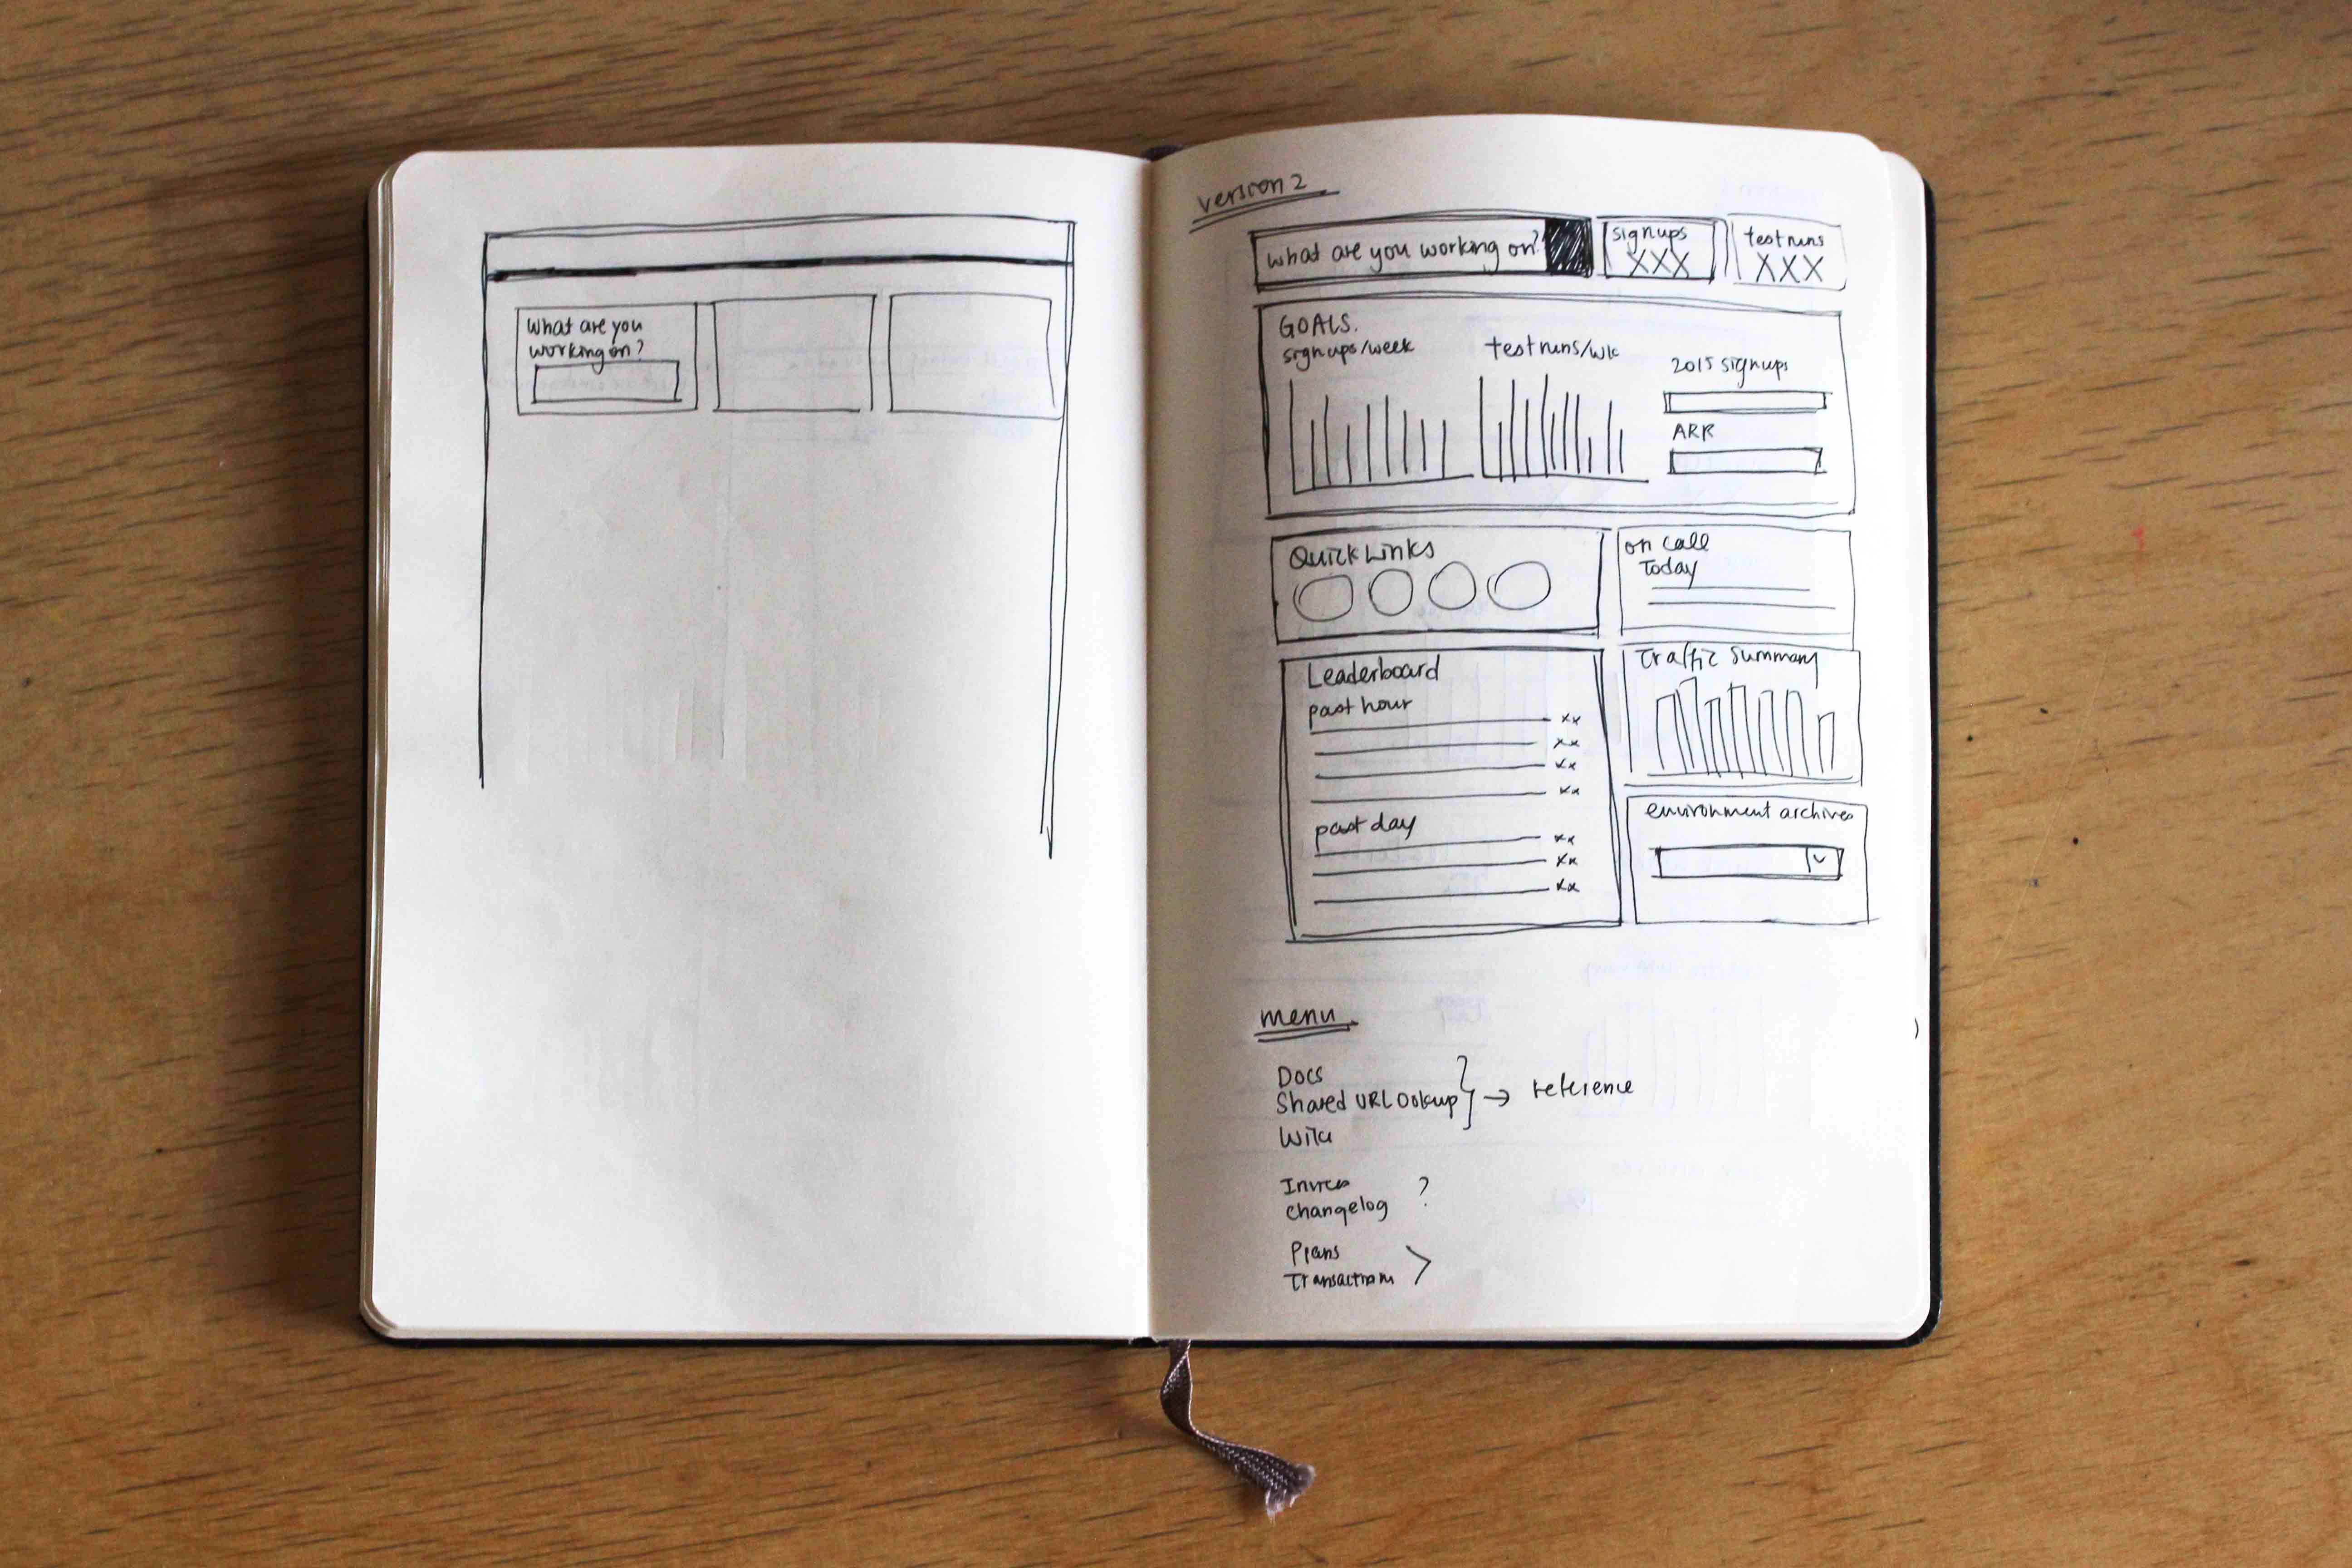 What are you
working on?
version 2
what are you working on?
signups
XXX
test runs
XXX
GOALS.
signups/week
test runs/wk
2015 signups
ARR
Quick Links
on call
Today
Leaderboard
past hour
xx
xx
xx
xx
past day
xx
xx
xx
Traffic Summary
environment archives
menu
Docs
Shared URL Lookup
→ reference
Wiki
changelog
?
Plans
Transactions